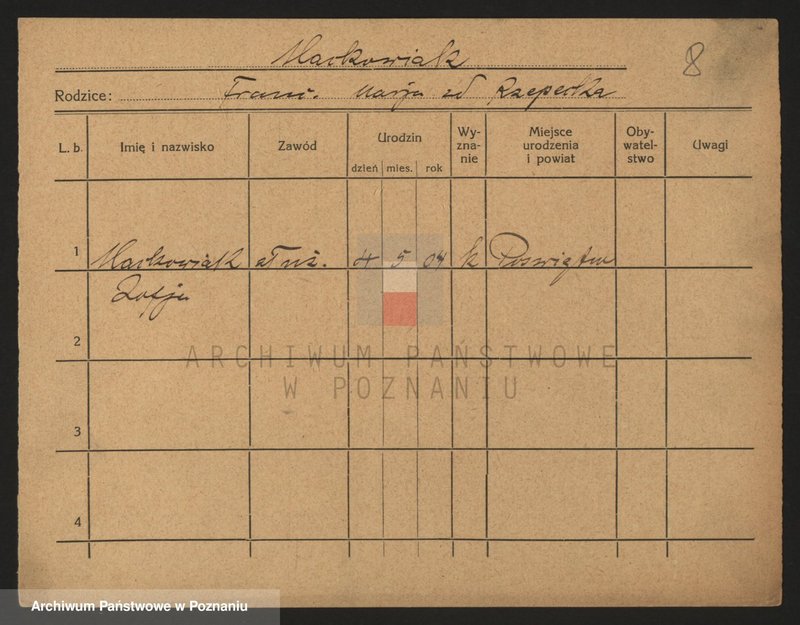 Maćkowiak
8
Rodzice: Franc. Marja zd Rzepecka
L. b. Imię i nazwisko Zawód Urodzin dzień mies. rok Wy-zna-nie Miejsce urodzenia i powiat Oby-watel-stwo Uwagi
1 Maćkowiak służ. 4 5 04 k
Zofja
2
ARCHIWUM PAŃSTWOWE
W POZNANIU
3
4
Archiwum Państwowe w Poznaniu